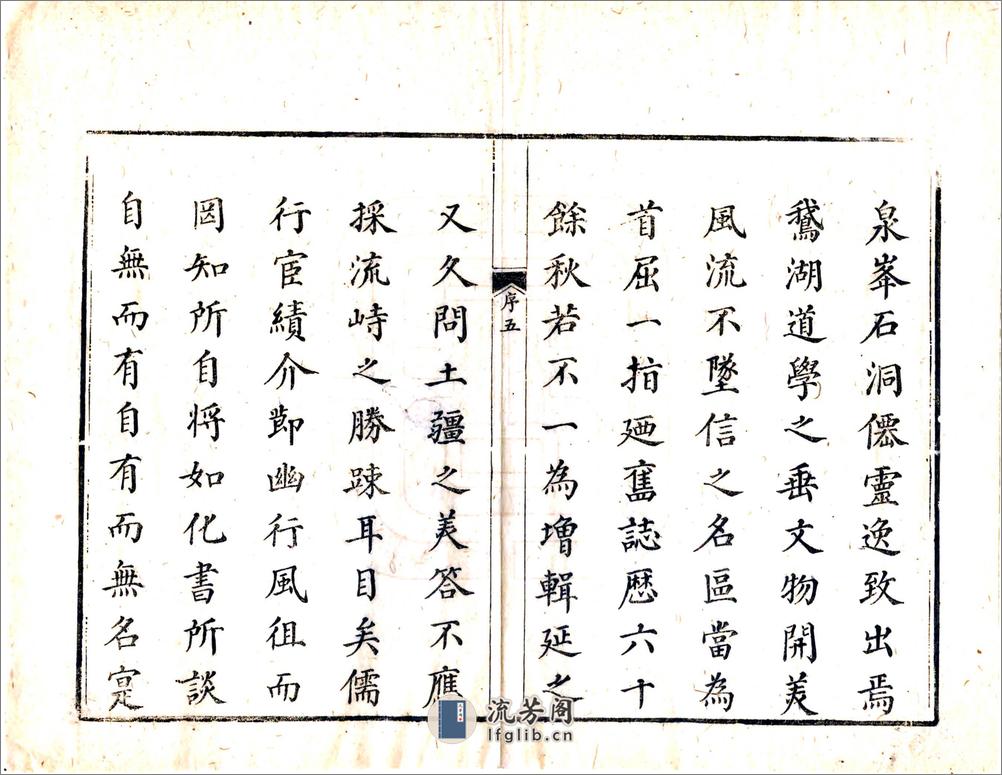 泉峯石洞僊靈逸致出焉
鵞湖道學之垂文物開美
風流不墜信之名區當為
首屈一指廼舊誌歷六十
餘秋若不一為增輯延之
序五
又久問土疆之美答不應
採流峙之勝踈耳目矣儒
行宦績介節幽行風徂而
罔知所自将如化書所談
自無而有自有而無名寔
流芳阁
lfglib.cn